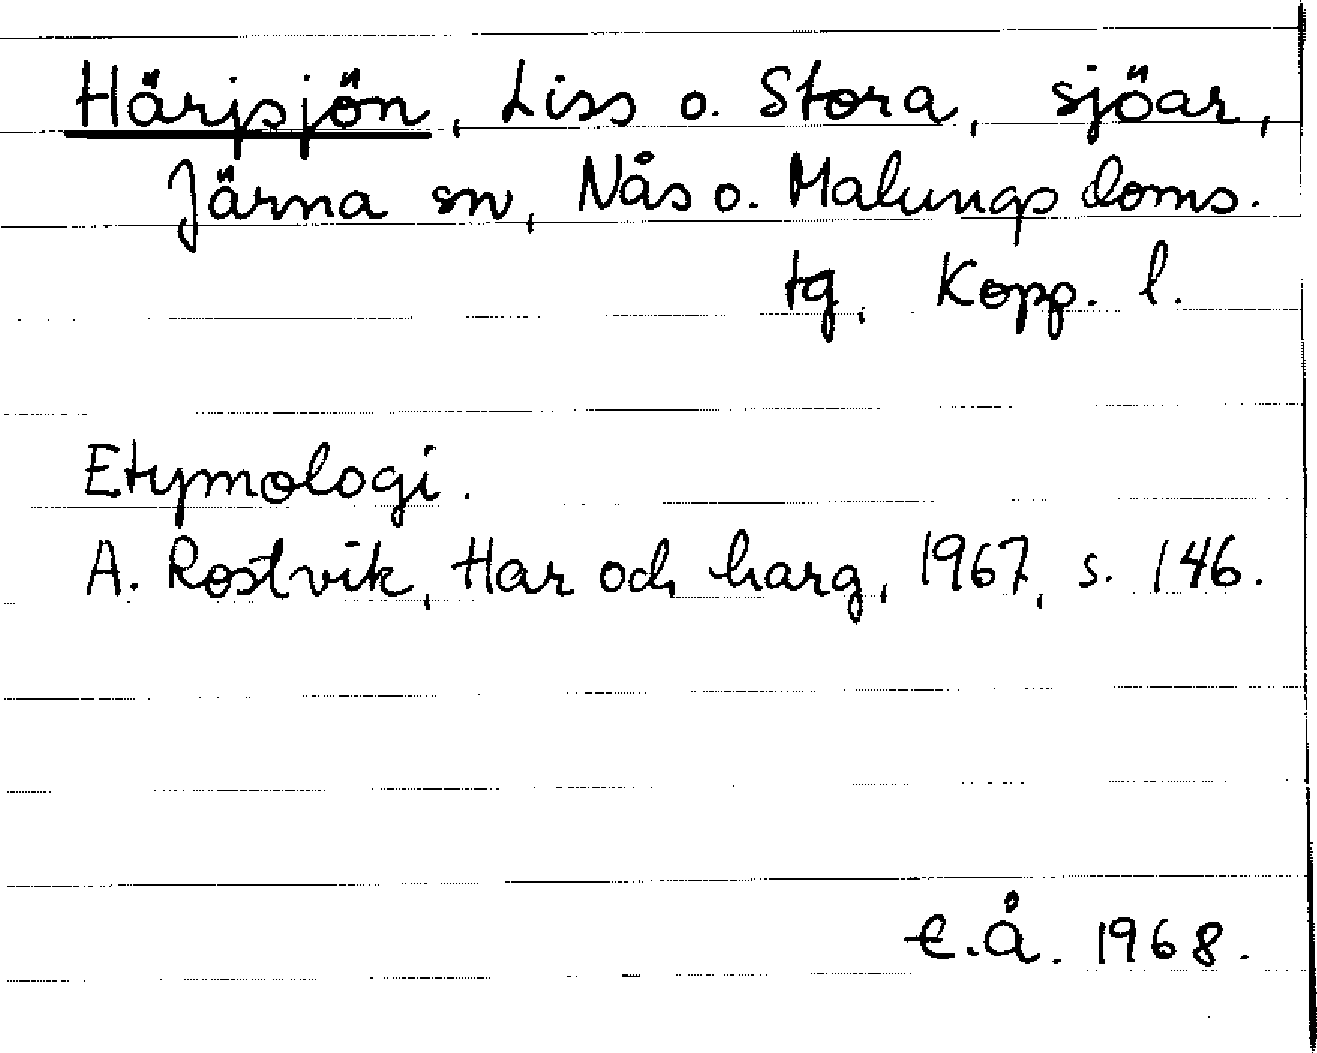 Härjsjön, Liss o. Stora, sjöar,
Järna sn, Nås o. Malungs doms.
tg, Kopp. l.
Etymologi.
A. Rostvik, Har och harg, 1967, s. 146.
E.Å. 1968.